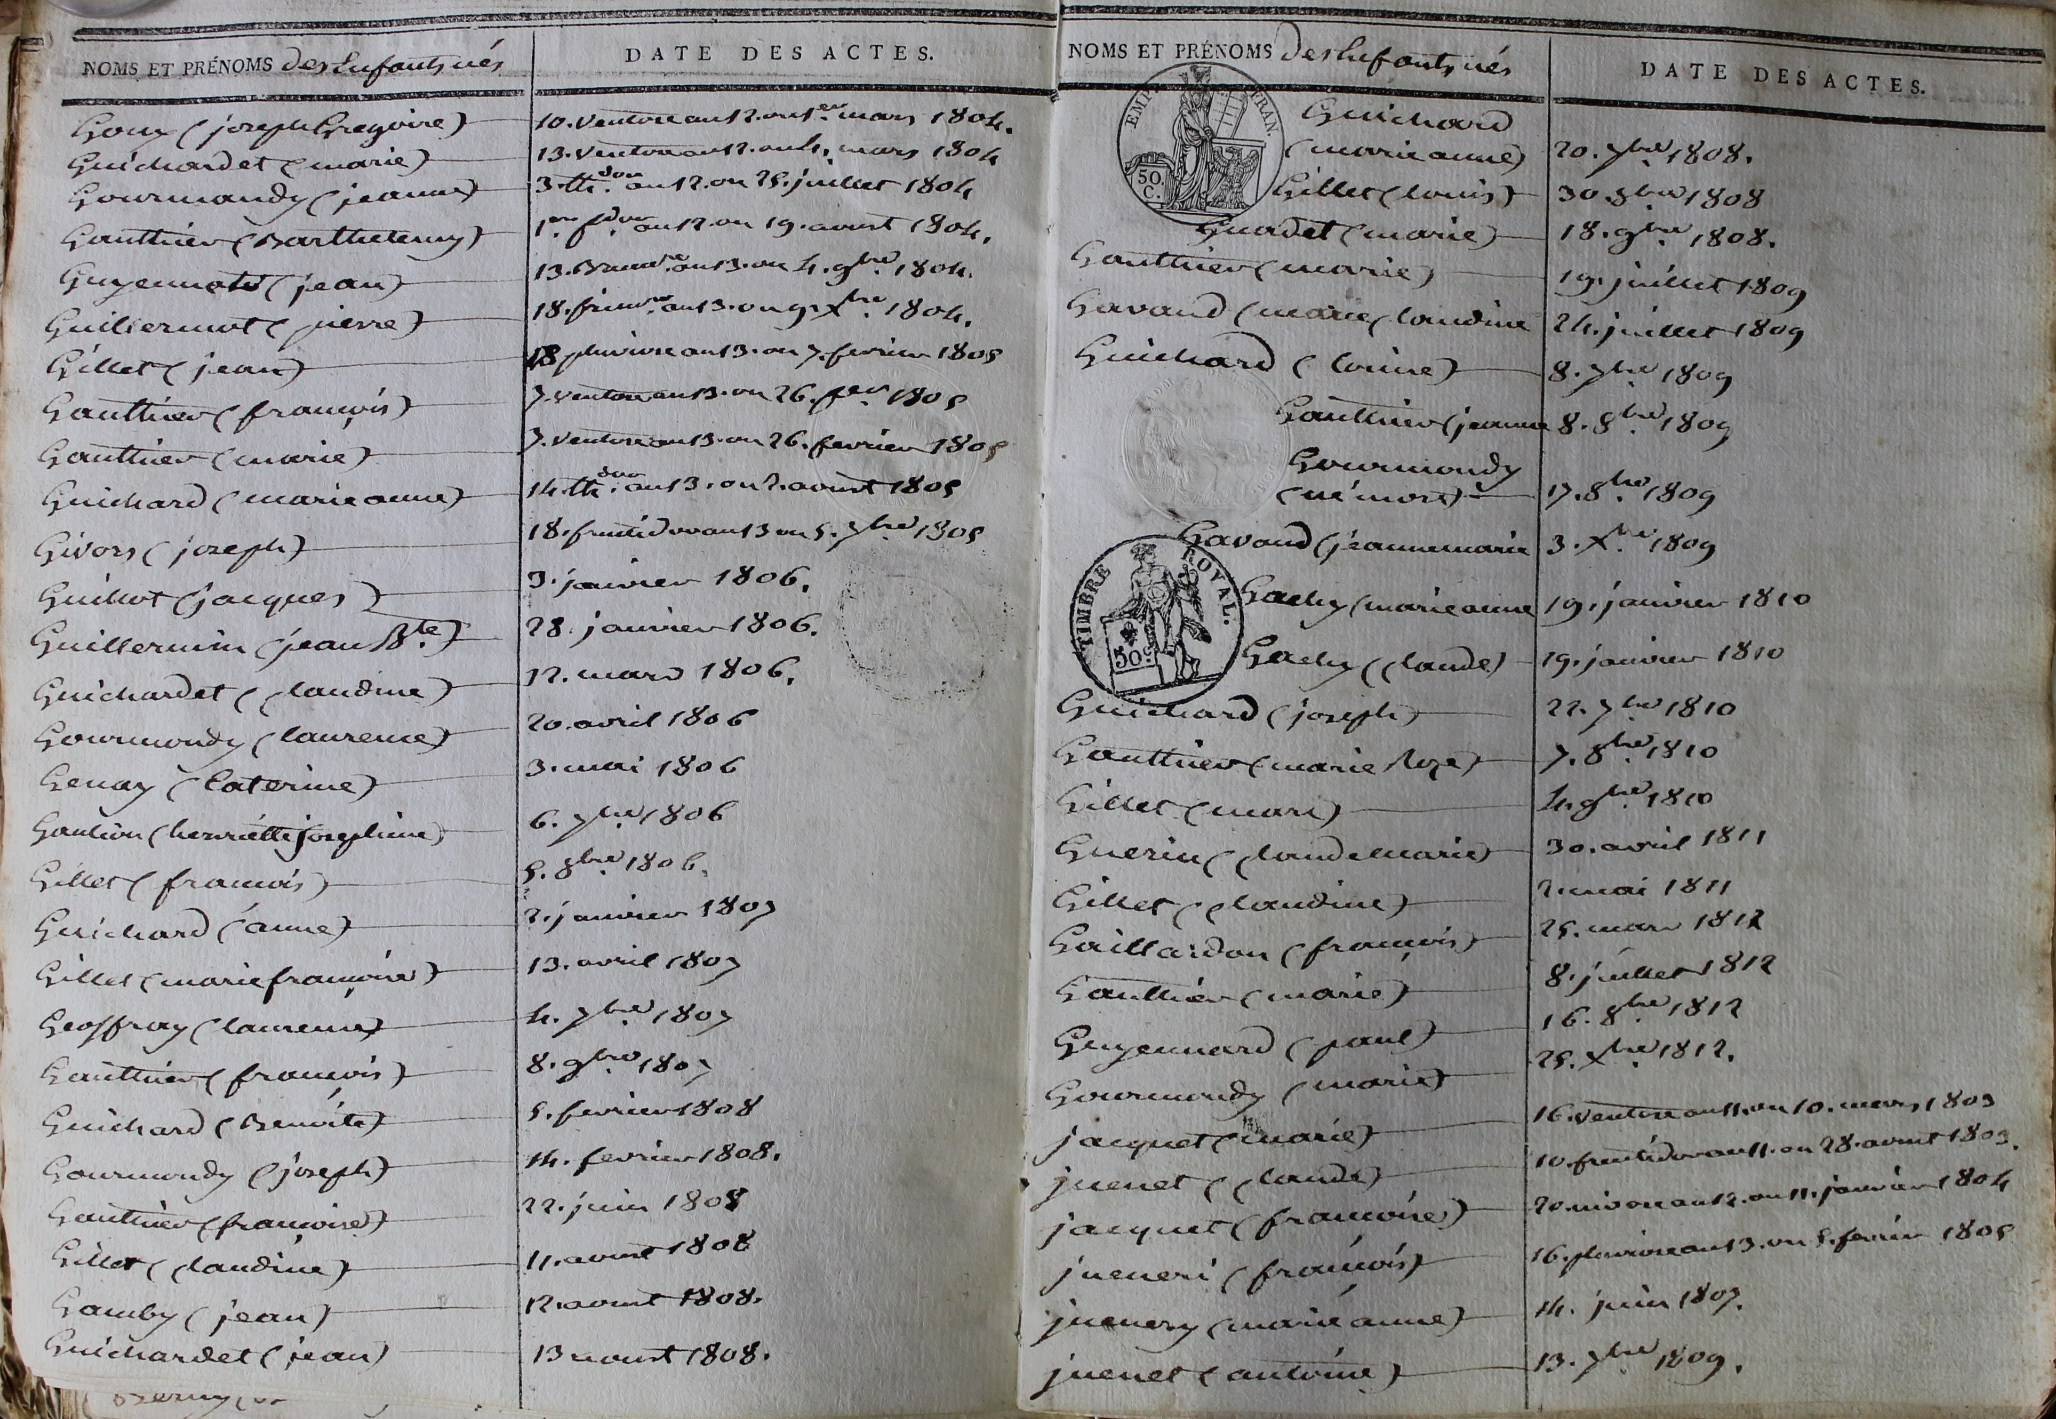 NOMS ET PRÉNOMS des Enfants nés
DATE DES ACTES.
Goux (joseph Gregoire) 10. ventose an 12. ou 1er. mars 1804.
Guichardet (marie) 13. ventose an 12. ou 4. mars 1804
Gourmandy (jeanne) 3. th.dor an 12. ou 25. juillet 1804
Gauthier (Barthelemy) 1er. f.dor an 12. ou 19. aoust 1804.
Guyennot (jean) 13. Brumre. an 13. ou 4. 9bre. 1804.
Guillermot (pierre) 18. frimre. an 13. ou 9. Xbre. 1804.
Gillet (jean) 18 pluviose an 13. ou 7. fevrier 1805
Gauthier (françois) 7. ventose an 13. ou 26. fer 1805
Gauthier (marie) 7. ventose an 13. ou 26. fevrier 1805
Guichard (marie anne) 14. th.dor an 13. ou 2. aoust 1805
Givors (joseph) 18. fructidor an 13 ou 5. 7bre 1805
Guillot (jacques) 3. janvier 1806.
Guillermin (jean Bte.) 28. janvier 1806.
Guichardet (Claudine) 12. mars 1806.
Gourmondy (laurence) 20. avril 1806
Genay (Caterine) 3. mai 1806
(henriette josephine) 6. 7bre. 1806
Gillet (francois) 5. 8bre. 1806.
Guichard (anne) 2. janvier 1807
Gillet (marie françoise) 13. avril 1807
Geoffray (laurence) 4. 7bre. 1807
Gauthier (francois) 8. 9bre. 1807
Guichard (Benoite) 5. fevrier 1808
Gourmondy (joseph) 14. fevrier 1808.
Gauthier (françoise) 22. juin 1808
Gillet (Claudine) 11. aoust 1808
Gamby (jean) 12. aoust 1808.
Guichardet (jean) 13 aoust 1808.
NOMS ET PRÉNOMS des Enfants nés
DATE DES ACTES.
EMP. FRAN.
50. C.
Guichard
(marie anne) 20. 7bre. 1808.
Gillet (louis) 30. 8bre 1808
Guadet (marie) 18. 9bre. 1808.
Gauthier (marie) 19. juillet 1809
Gavand (marie Claudine 24. juillet 1809
Guichard (louise) 8. 7bre 1809
Gauthier (jeanne 8. 8bre. 1809
Gourmondy
(né mort) 17. 8bre. 1809
Gavand (jeanne marie 3. Xbre. 1809
TIMBRE ROYAL.
50 c
Gachy (marie anne 19. janvier 1810
Gachy (Claude) 19. janvier 1810
Guichard (joseph) 22. 7bre 1810
Gauthier (marie Roze) 7. 8bre. 1810
Gillet (marc) 4. 9bre. 1810
Guerin (Claude marie) 30. avril 1811
Gillet (Claudine) 2. mai 1811
Gaillardon (françois) 25. mars 1812
Gauthier (marie) 8. juillet 1812
Guyennard (paul) 16. 8bre. 1812
Gourmondy (marie) 25. Xbre. 1812.
jacquet (marie) 16. ventose an 11. ou 10. mars 1803
juenet (Claude) 10. fructidor an 11. ou 28. aoust 1803.
jacquet (francoise) 20. nivose an 12. ou 11. janvier 1804
jueneri (francois) 16. pluviose an 13. ou 5. fevrier 1805
juenery (marie anne) 14. juin 1807.
juenet (antoine) 13. 7bre 1809.